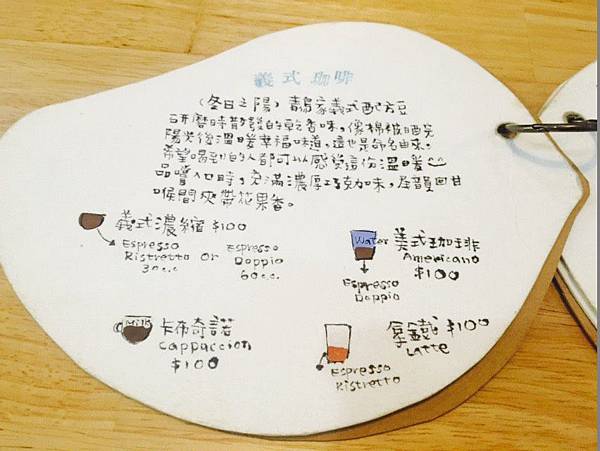 義式珈啡
(冬日之陽)獨家義式配方豆
研磨時散發的乾香味,像棉被晒完
陽光後溫暖幸福味道,這也是命名由來。
希望喝到的人都可以感覺這份溫暖
品嚐入口時,充滿濃厚巧克加味,尾韻回甘
喉間夾帶花果香。
義式濃縮 $100
Espresso
Ristretto or
30c.c
Espresso
Doppio
60c.c.
Water
美式珈琲
Americano
$100
Espresso
Doppio
Milk
卡布奇諾
Cappaccion
$100
拿鐵 $100
Latte
Espresso
Ristretto